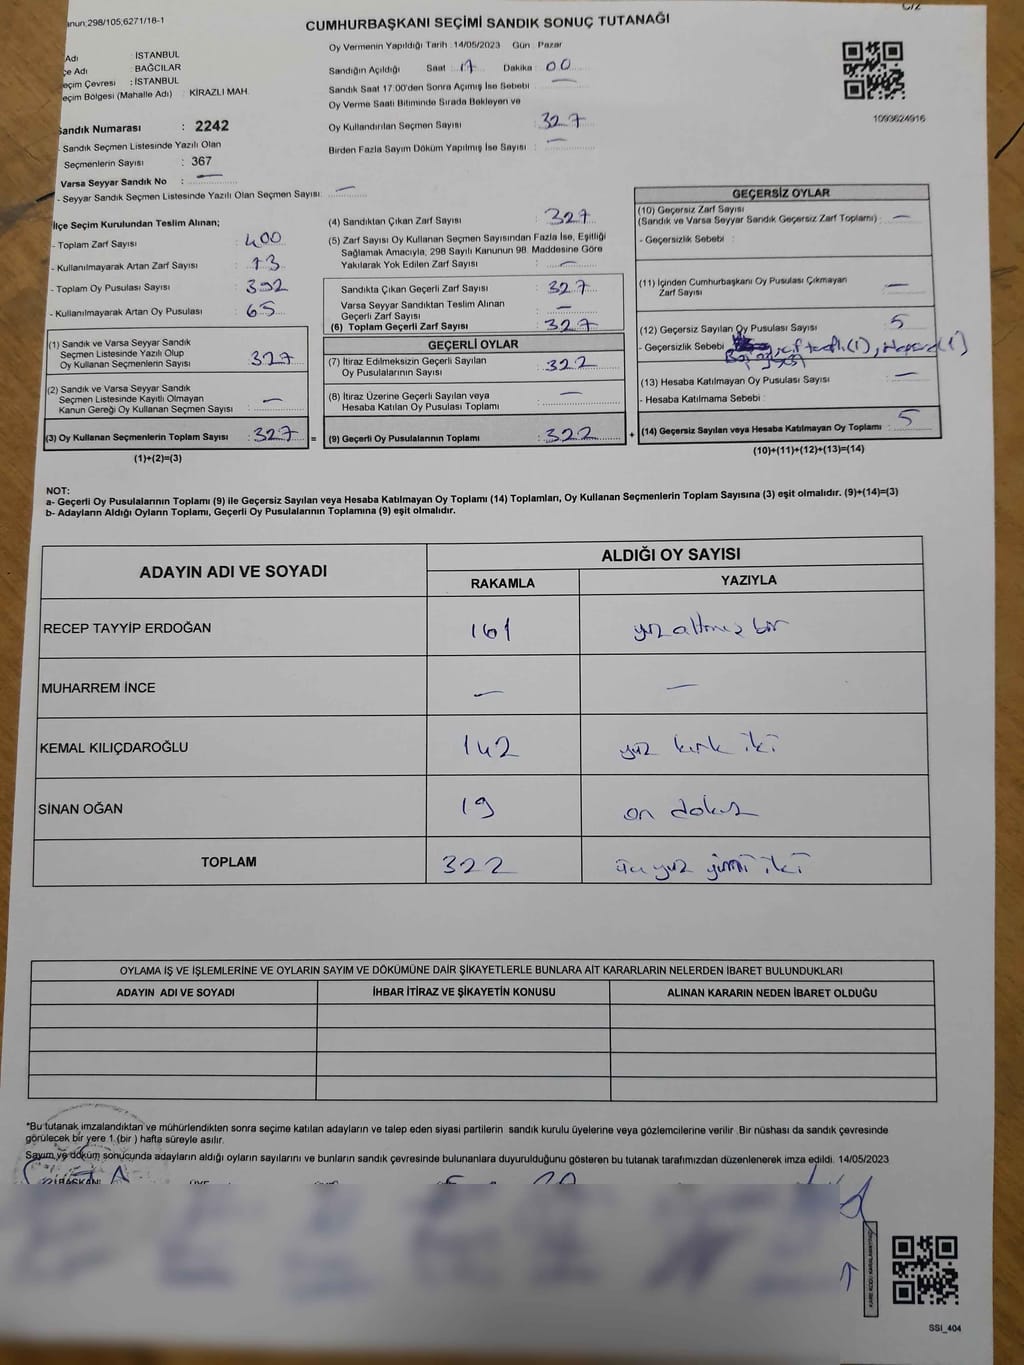 CUMHURBAŞKANI SEÇİMİ SANDIK SONUÇ TUTANAĞI
anun;298/105;6271/18-1
C/2
Adı : İSTANBUL
çe Adı : BAĞCILAR
eçim Çevresi : İSTANBUL
eçim Bölgesi (Mahalle Adı) : KİRAZLI MAH.
Sandık Numarası : 2242
- Sandık Seçmen Listesinde Yazılı Olan
Seçmenlerin Sayısı : 367
Varsa Seyyar Sandık No : —
- Seyyar Sandık Seçmen Listesinde Yazılı Olan Seçmen Sayısı: —
Oy Vermenin Yapıldığı Tarih : 14/05/2023 Gün : Pazar
Sandığın Açıldığı Saat : 17 Dakika : 00
Sandık Saat 17.00'den Sonra Açımış İse Sebebi : —
Oy Verme Saati Bitiminde Sırada Bekleyen ve
Oy Kullandırılan Seçmen Sayısı : 327
Birden Fazla Sayım Döküm Yapılmış İse Sayısı : —
1093624916
İlçe Seçim Kurulundan Teslim Alınan;
- Toplam Zarf Sayısı : 400
- Kullanılmayarak Artan Zarf Sayısı : 73
- Toplam Oy Pusulası Sayısı : 392
- Kullanılmayarak Artan Oy Pusulası : 65
(1) Sandık ve Varsa Seyyar Sandık
Seçmen Listesinde Yazılı Olup
Oy Kullanan Seçmenlerin Sayısı : 327
(2) Sandık ve Varsa Seyyar Sandık
Seçmen Listesinde Kayıtlı Olmayan
Kanun Gereği Oy Kullanan Seçmen Sayısı : —
(3) Oy Kullanan Seçmenlerin Toplam Sayısı : 327 =
(1)+(2)=(3)
(4) Sandıktan Çıkan Zarf Sayısı : 327
(5) Zarf Sayısı Oy Kullanan Seçmen Sayısından Fazla İse, Eşitliği
Sağlamak Amacıyla, 298 Sayılı Kanunun 98. Maddesine Göre
Yakılarak Yok Edilen Zarf Sayısı : —
Sandıkta Çıkan Geçerli Zarf Sayısı : 327
Varsa Seyyar Sandıktan Teslim Alınan
Geçerli Zarf Sayısı : —
(6) Toplam Geçerli Zarf Sayısı : 327
GEÇERLİ OYLAR
(7) İtiraz Edilmeksizin Geçerli Sayılan
Oy Pusulalarının Sayısı : 322
(8) İtiraz Üzerine Geçerli Sayılan veya
Hesaba Katılan Oy Pusulası Toplamı : —
(9) Geçerli Oy Pusulalarının Toplamı : 322 +
GEÇERSİZ OYLAR
(10) Geçersiz Zarf Sayısı
(Sandık ve Varsa Seyyar Sandık Geçersiz Zarf Toplamı) : —
- Geçersizlik Sebebi :
(11) İçinden Cumhurbaşkanı Oy Pusulası Çıkmayan
Zarf Sayısı : —
(12) Geçersiz Sayılan Oy Pusulası Sayısı : 5
- Geçersizlik Sebebi
(13) Hesaba Katılmayan Oy Pusulası Sayısı : —
- Hesaba Katılmama Sebebi :
(14) Geçersiz Sayılan veya Hesaba Katılmayan Oy Toplamı : 5
(10)+(11)+(12)+(13)=(14)
NOT:
a- Geçerli Oy Pusulalarının Toplamı (9) ile Geçersiz Sayılan veya Hesaba Katılmayan Oy Toplamı (14) Toplamları, Oy Kullanan Seçmenlerin Toplam Sayısına (3) eşit olmalıdır. (9)+(14)=(3)
b- Adayların Aldığı Oyların Toplamı, Geçerli Oy Pusulalarının Toplamına (9) eşit olmalıdır.
ADAYIN ADI VE SOYADI ALDIĞI OY SAYISI
RAKAMLA YAZIYLA
RECEP TAYYİP ERDOĞAN 161 yüz altmış bir
MUHARREM İNCE — —
KEMAL KILIÇDAROĞLU 142 yüz kırk iki
SİNAN OĞAN 19 on dokuz
TOPLAM 322 üç yüz yirmi iki
OYLAMA İŞ VE İŞLEMLERİNE VE OYLARIN SAYIM VE DÖKÜMÜNE DAİR ŞİKAYETLERLE BUNLARA AİT KARARLARIN NELERDEN İBARET BULUNDUKLARI
ADAYIN ADI VE SOYADI İHBAR İTİRAZ VE ŞİKAYETİN KONUSU ALINAN KARARIN NEDEN İBARET OLDUĞU
*Bu tutanak imzalandıktan ve mühürlendikten sonra seçime katılan adayların ve talep eden siyasi partilerin sandık kurulu üyelerine veya gözlemcilerine verilir .Bir nüshası da sandık çevresinde
görülecek bir yere 1 (bir ) hafta süreyle asılır.
Sayım ve döküm sonucunda adayların aldığı oyların sayılarını ve bunların sandık çevresinde bulunanlara duyurulduğunu gösteren bu tutanak tarafımızdan düzenlenerek imza edildi. 14/05/2023
SSI_404